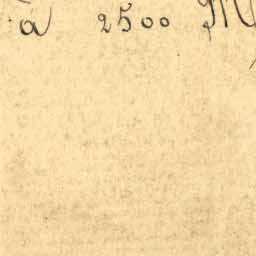 à 2500 M